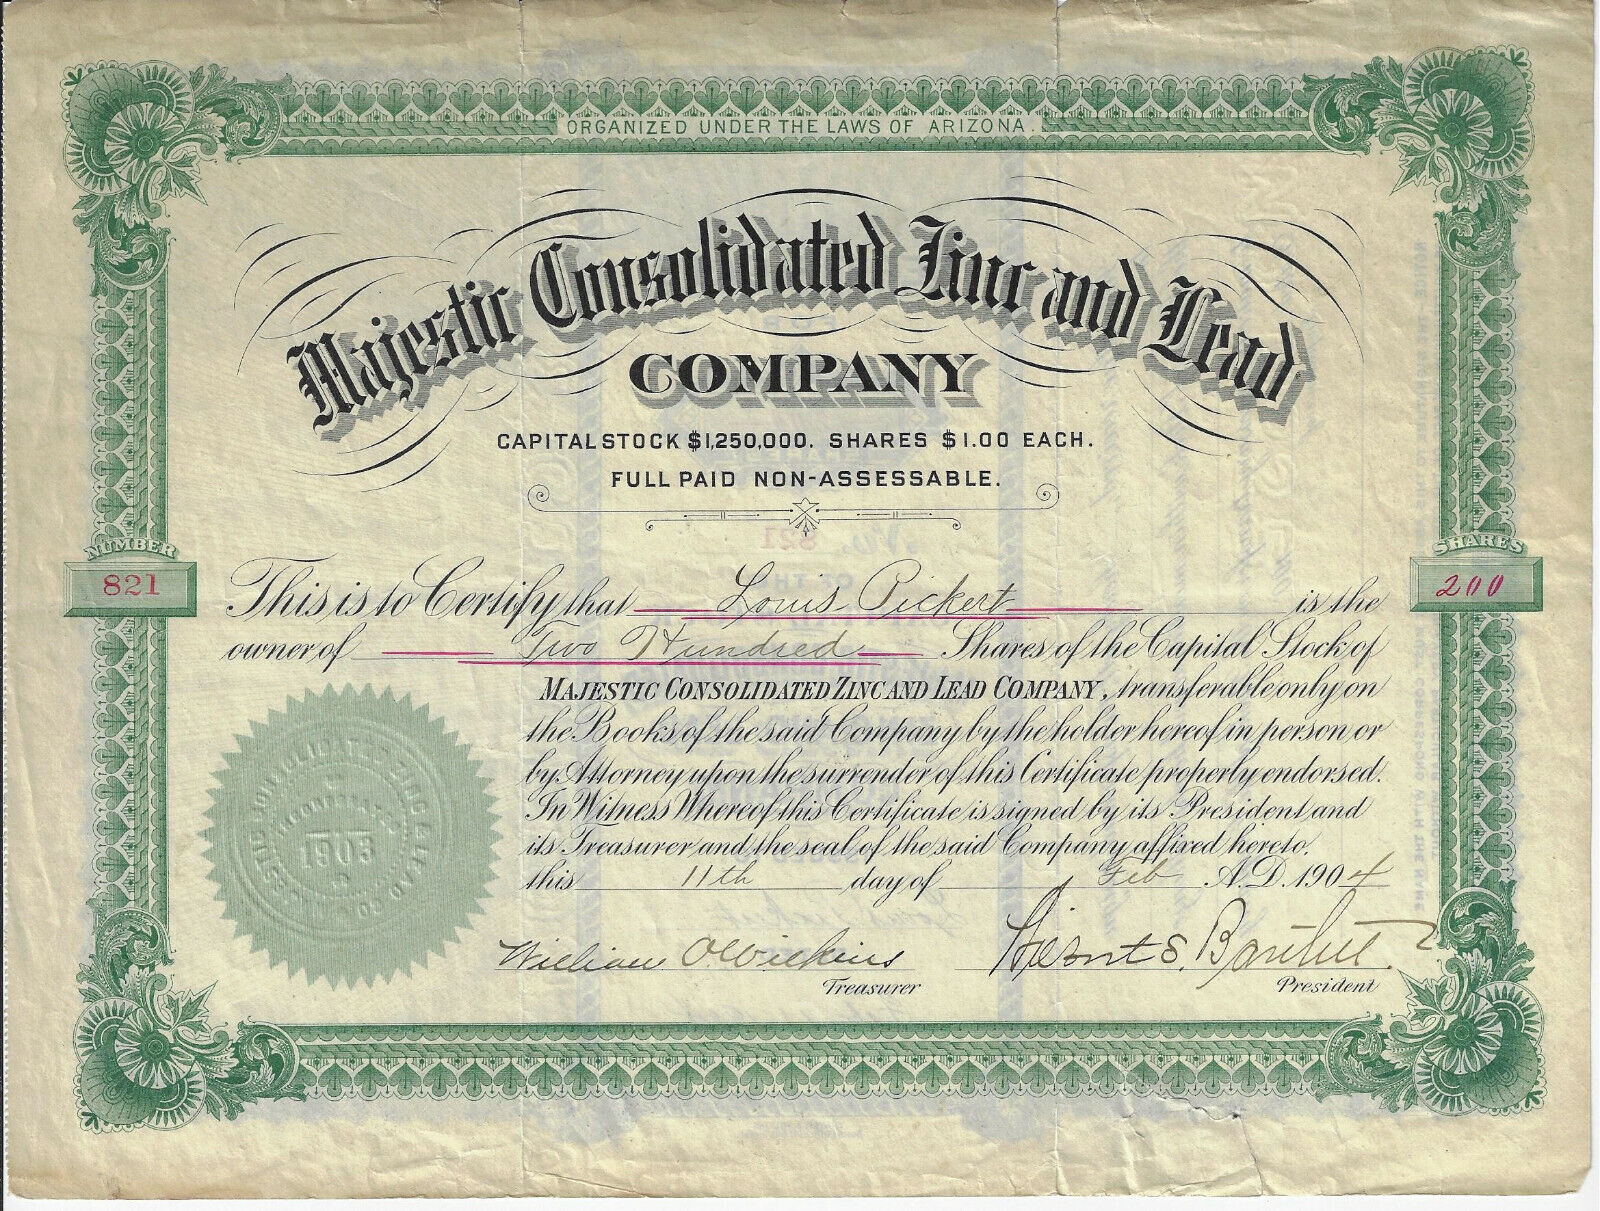 ORGANIZED UNDER THE LAWS OF ARIZONA.
Majestic Consolidated Zinc and Lead
COMPANY
CAPITAL STOCK $1,250,000. SHARES $1.00 EACH.
FULL PAID NON-ASSESSABLE.
NUMBER
821
SHARES
200
This is to Certify that Louis Pickert is the
owner of Two Hundred Shares of the Capital Stock of
MAJESTIC CONSOLIDATED ZINC AND LEAD COMPANY, transferable only on
the Books of the said Company by the holder hereof in person or
by Attorney upon the surrender of this Certificate properly endorsed.
In Witness Whereof this Certificate is signed by its President and
its Treasurer and the seal of the said Company affixed hereto,
this 11th day of Feb A.D. 1904
William O Wilkins
Treasurer
S. Bartlett
President
MAJESTIC CONSOLIDATED ZINC & LEAD CO.
INCORPORATED
1903